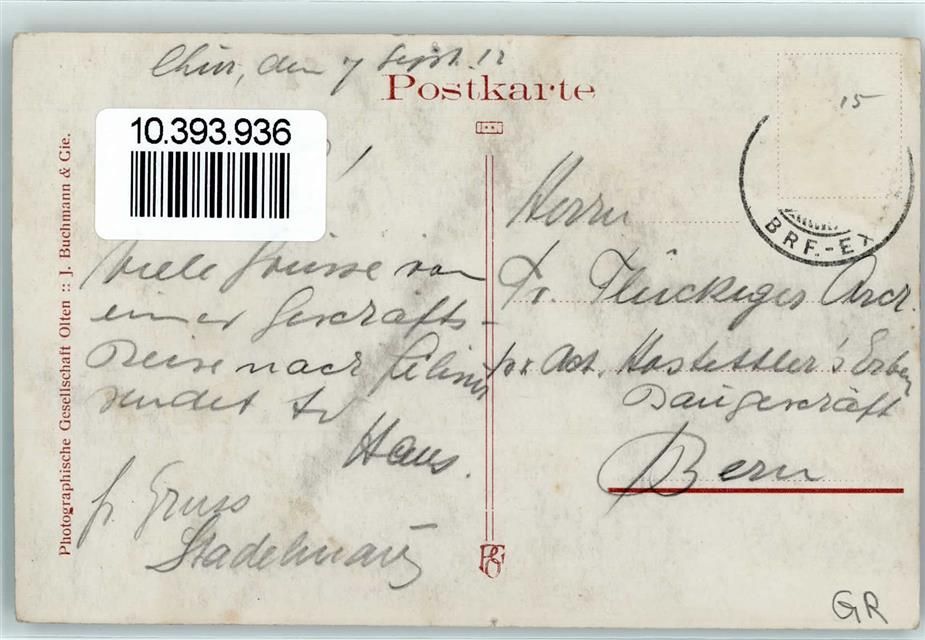 Chur, den 7 Sept. 12
Postkarte
15
10.393.936
BRF.-EX
Photographische Gesellschaft Olten :: J. Buchmann & Cie.
Viele Grüsse von
einer Geschäfts-
Reise nach
sendet Dir
Hans.
fr. Gruss
Stadelmann
Herrn
Fr. Flückiger Arch.
Hostettler's Erben
Baugeschäft
Bern
PGO
GR